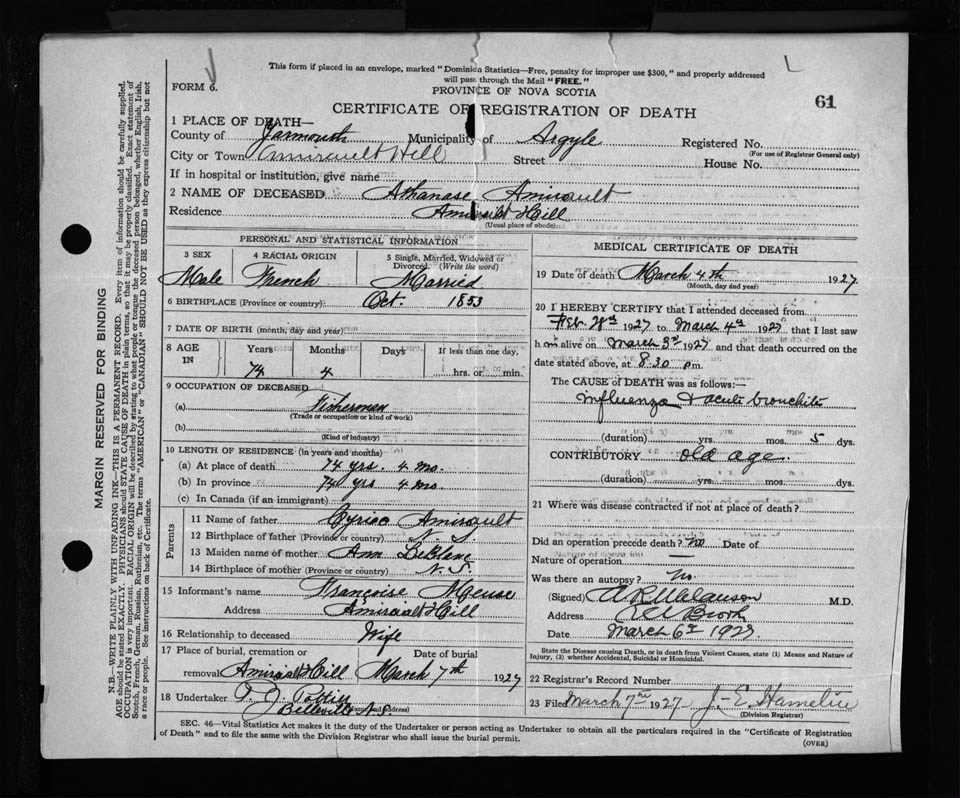 This form if placed in an envelope, marked "Dominion Statistics—Free, penalty for improper use $300," and properly addressed
will pass through the Mail "FREE."
FORM 6.
PROVINCE OF NOVA SCOTIA
61
CERTIFICATE OF REGISTRATION OF DEATH
1 PLACE OF DEATH—
County of Yarmouth Municipality of Argyle Registered No.
(For use of Registrar General only)
City or Town Amirault Hill Street House No.
If in hospital or institution, give name
2 NAME OF DECEASED Athanase Amirault
Residence Amirault Hill
(Usual place of abode)
PERSONAL AND STATISTICAL INFORMATION
3 SEX 4 RACIAL ORIGIN 5 Single, Married, Widowed or Divorced. (Write the word)
Male French Married
6 BIRTHPLACE (Province or country) Oct. 1853
7 DATE OF BIRTH (month, day and year)
8 AGE IN Years Months Days If less than one day,
74 4 hrs. or min.
9 OCCUPATION OF DECEASED
(a) Fisherman
(Trade or occupation or kind of work)
(b)
(Kind of industry)
10 LENGTH OF RESIDENCE (In years and months)
(a) At place of death 74 yrs. 4 mo.
(b) In province 74 yrs 4 mo.
(c) In Canada (if an immigrant)
Parents
11 Name of father Cyriac Amirault
12 Birthplace of father (Province or country) N. S.
13 Maiden name of mother Ann LeBlanc
14 Birthplace of mother (Province or country) N. S.
15 Informant's name Françoise Meuse
Address Amirault Hill
16 Relationship to deceased Wife
17 Place of burial, cremation or removal Date of burial
Amirault Hill March 7th 1927
18 Undertaker
Belleville N.S.
(Name and Address)
MEDICAL CERTIFICATE OF DEATH
19 Date of death March 4th 1927
(Month, day and year)
20 I HEREBY CERTIFY that I attended deceased from
Feb. 28th 1927 to March 4th 1927 that I last saw
h im alive on March 3rd 1927 and that death occurred on the
date stated above, at 8.30 pm.
The CAUSE OF DEATH was as follows:—
Influenza & acute bronchitis
(duration) yrs. mos. 5 dys.
CONTRIBUTORY old age.
(duration) yrs. mos. dys.
21 Where was disease contracted if not at place of death?
Did an operation precede death? no Date of
Nature of operation —
Was there an autopsy? no.
(Signed) M.D.
Address
Date March 6th 1927.
State the Disease causing Death, or in death from Violent Causes, state (1) Means and Nature of
Injury, (2) whether Accidental, Suicidal or Homicidal.
22 Registrar's Record Number
23 Filed March 7th 1927 J. E. Hamelin
(Division Registrar)
SEC. 46—Vital Statistics Act makes it the duty of the Undertaker or person acting as Undertaker to obtain all the particulars required in the "Certificate of Registration
of Death" and to file the same with the Division Registrar who shall issue the burial permit.
(OVER)
MARGIN RESERVED FOR BINDING
N.B.—WRITE PLAINLY WITH UNFADING INK—THIS IS A PERMANENT RECORD. Every item of information should be carefully supplied.
AGE should be stated EXACTLY. PHYSICIANS should STATE CAUSE OF DEATH in plain terms, so that it may be properly classified. Exact statement of
OCCUPATION is very important. RACIAL ORIGIN will be described by stating to what people or tongue the deceased person belonged, whether English, Irish,
Scotch, French, German, Russian, Ruthenian, etc. The terms "AMERICAN" or "CANADIAN" SHOULD NOT BE USED as they express citizenship but not
a race or people. See instructions on back of Certificate.